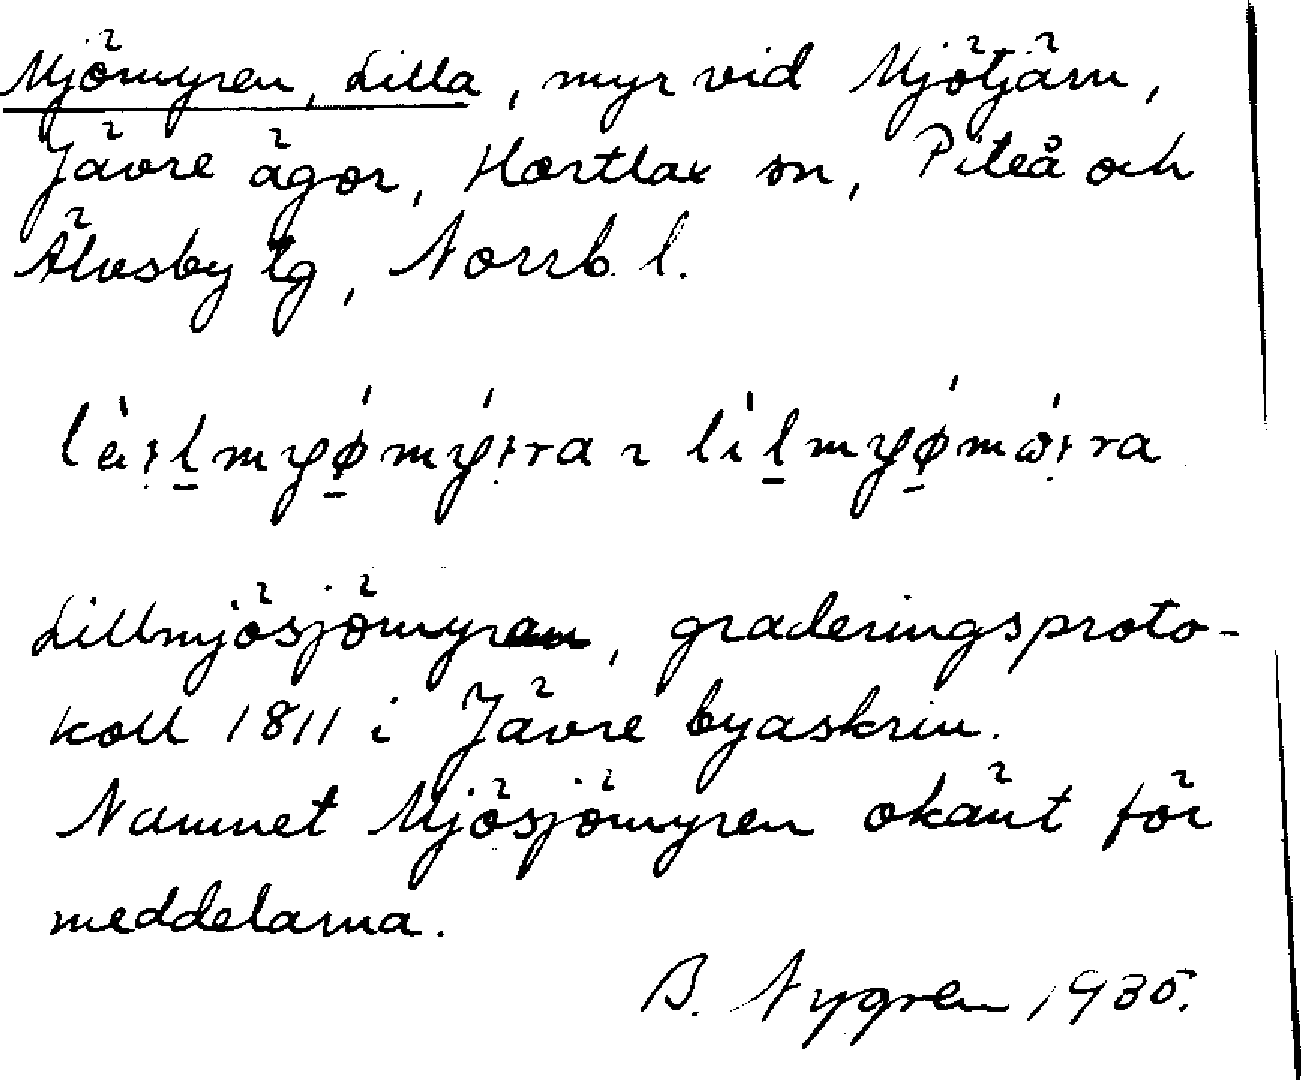 Mjömyren, Lilla, myr vid Mjötjärn,
Jävre ägor, Hortlax sn, Piteå och
Älvsby tg, Norrb. l.
Lillmjösjömyran, graderingsproto-
koll 1811 i Jävre byaskrin.
Namnet Mjösjömyren okänt för
meddelarna.
B. Nygren 1935.